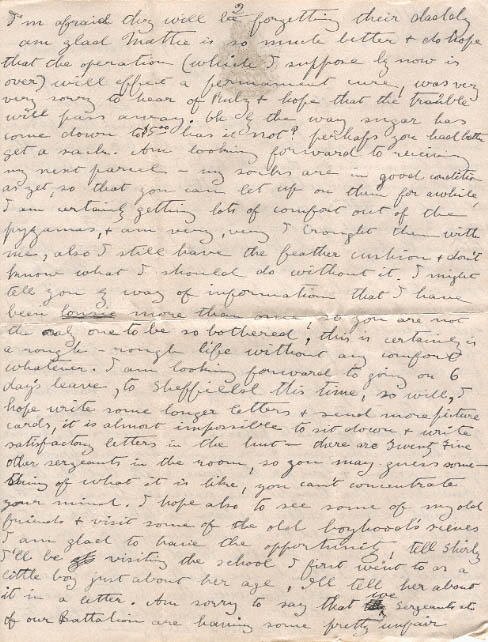 2
I'm afraid they will be forgetting their daddy
am glad Mattie is so much better & do hope
that the operation (which I suppose by now is
over) will effect a permanent cure, was very
very sorry to hear of Ruby & hope that the trouble
will pass away. Oh by the way sugar has
come down to $5.00 has it not? perhaps you had better
get a sack. Am looking forward to
my next parcel – my socks are in good condition
as yet, so that you can let up on them for awhile,
I am certainly getting lots of comfort out of the
pygamas, & am very, very I brought them with
me, also I still have the feather cushion & don't
know what I should do without it. I might
tell you by way of information that I have
been lousie more than once, so you are not
the only one to be so bothered, this is certainly is
a rough – rough life without any comfort
whatever. I am looking forward to going on 6
day's leave, to Sheffield this time, so will, I
hope write some longer letters & send more picture
cards, it is almost impossible to sit down & write
satisfactory letters in the hut – there are Twenty Five
other sergeants in the room, so you may guess some-
thing of what it is like, you can't concentrate
your mind. I hope also to see some of my old
friends & visit some of the old boyhood's scenes
I am glad to have the opportunity, tell Shirly
I'll be visiting the school I first went to as a
little boy just about her age, I'll tell her about
it in a letter. Am sorry to say that we Sergeants etc
of our Battalion are having some pretty unfair